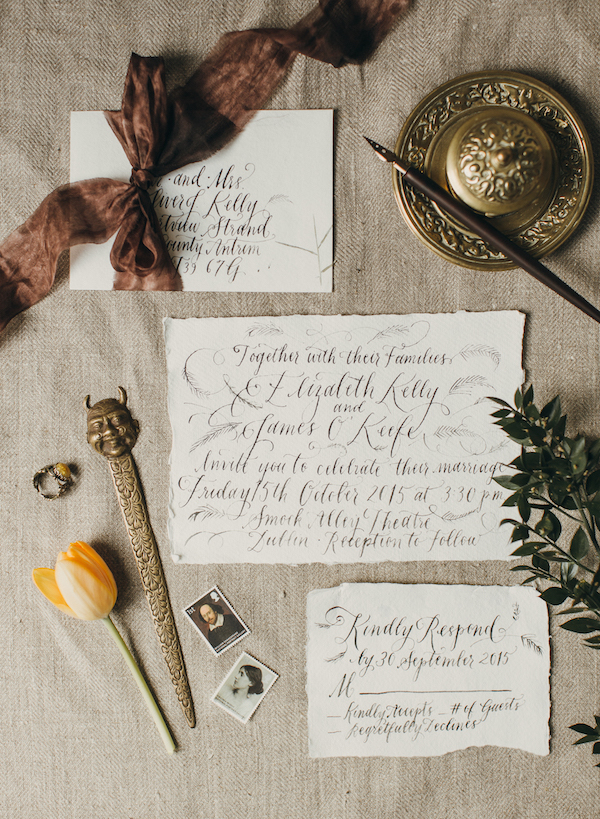 and Mrs.
Kelly
Strand
County Antrim
Together with their Families
Elizabeth Kelly
and
James O'Keefe
Invite you to celebrate their marriage
Friday 15th October 2015 at 3:30 pm
Smock Alley Theatre
Dublin · Reception to Follow
Kindly Respond
by 30 September 2015
M
Kindly Accepts _ # of Guests
Regretfully Declines
1st